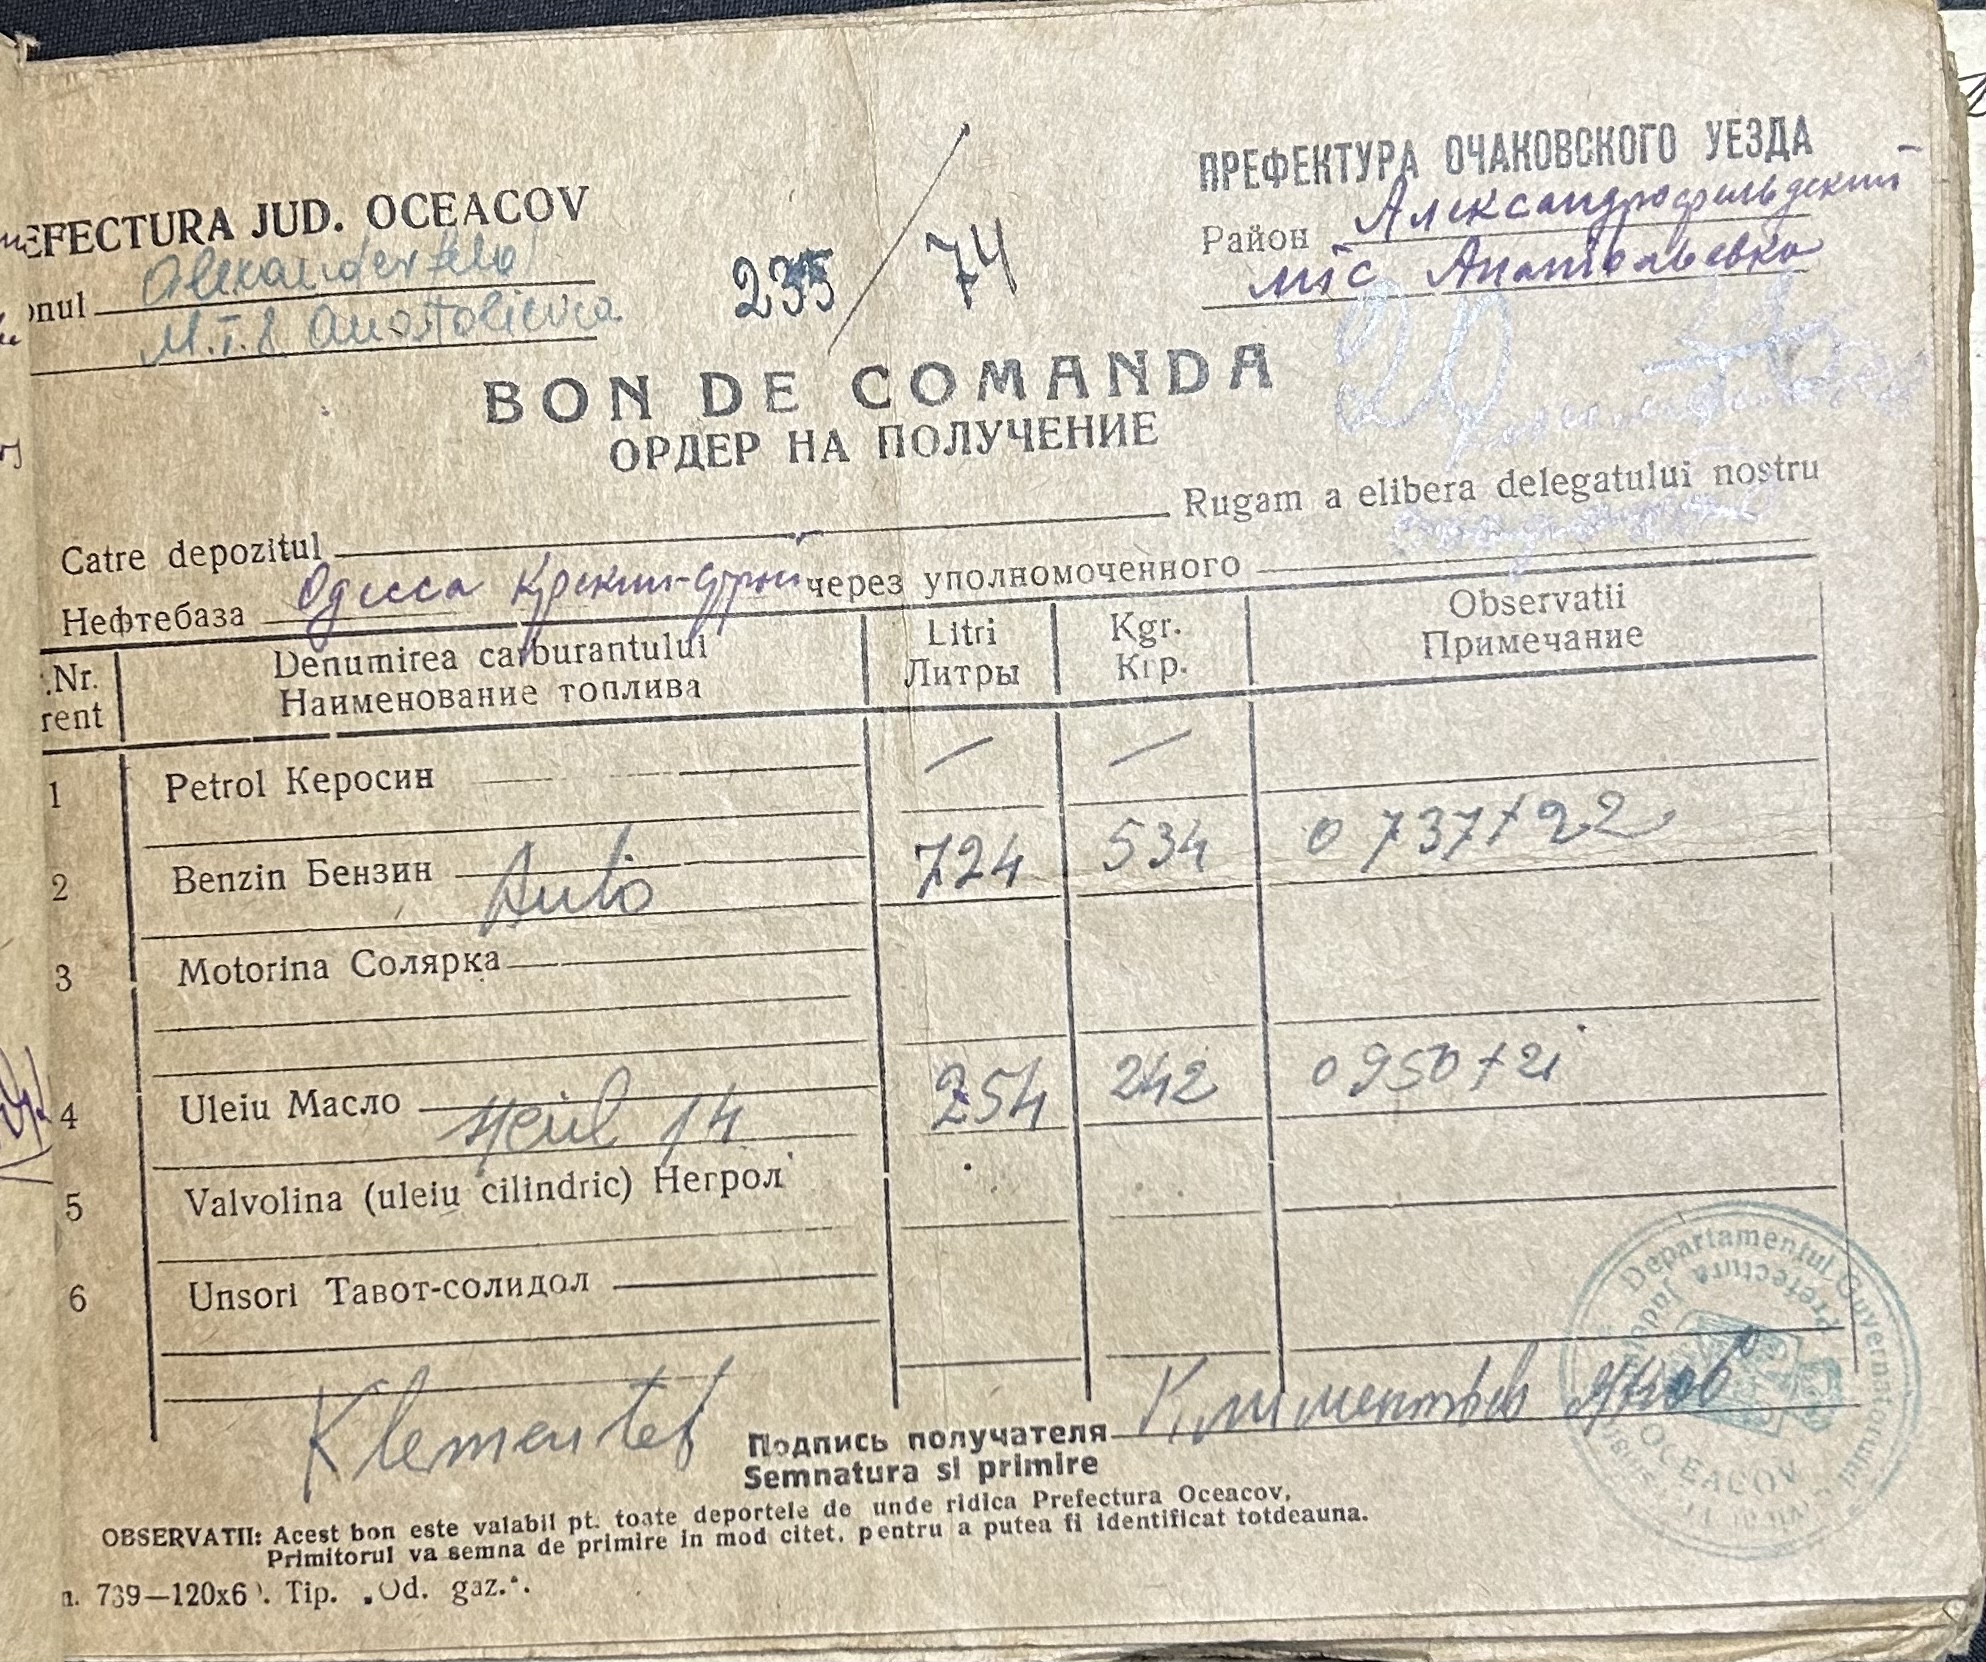 EFECTURA JUD. OCEACOV
onul Alexanderfeld
M.T.S. Anatolievca
235/74
ПРЕФЕКТУРА ОЧАКОВСКОГО УЕЗДА
Район Александрофельдский
мтс Анатольевка
20
BON DE COMANDA
ОРДЕР НА ПОЛУЧЕНИЕ
Catre depozitul Rugam a elibera delegatului nostru
Нефтебаза Одесса Крекин- через уполномоченного
Nr. Denumirea carburantului Litri Kgr. Observatii
rent Наименование топлива Литры Кгр. Примечание
1 Petrol Керосин — —
2 Benzin Бензин Auto 724 534 0737+22
3 Motorina Солярка
4 Uleiu Масло 14 254 242 0950+21
5 Valvolina (uleiu cilindric) Негрол
6 Unsori Тавот-солидол
Klementef
Подпись получателя Климентьев
Semnatura si primire
Departamentul Guvernatorului
Prefectura Judetului
OCEACOV
OBSERVATII: Acest bon este valabil pt. toate deportele de unde ridica Prefectura Oceacov.
Primitorul va semna de primire in mod citet, pentru a putea fi identificat totdeauna.
739—120x6 Tip. „Od. gaz.".